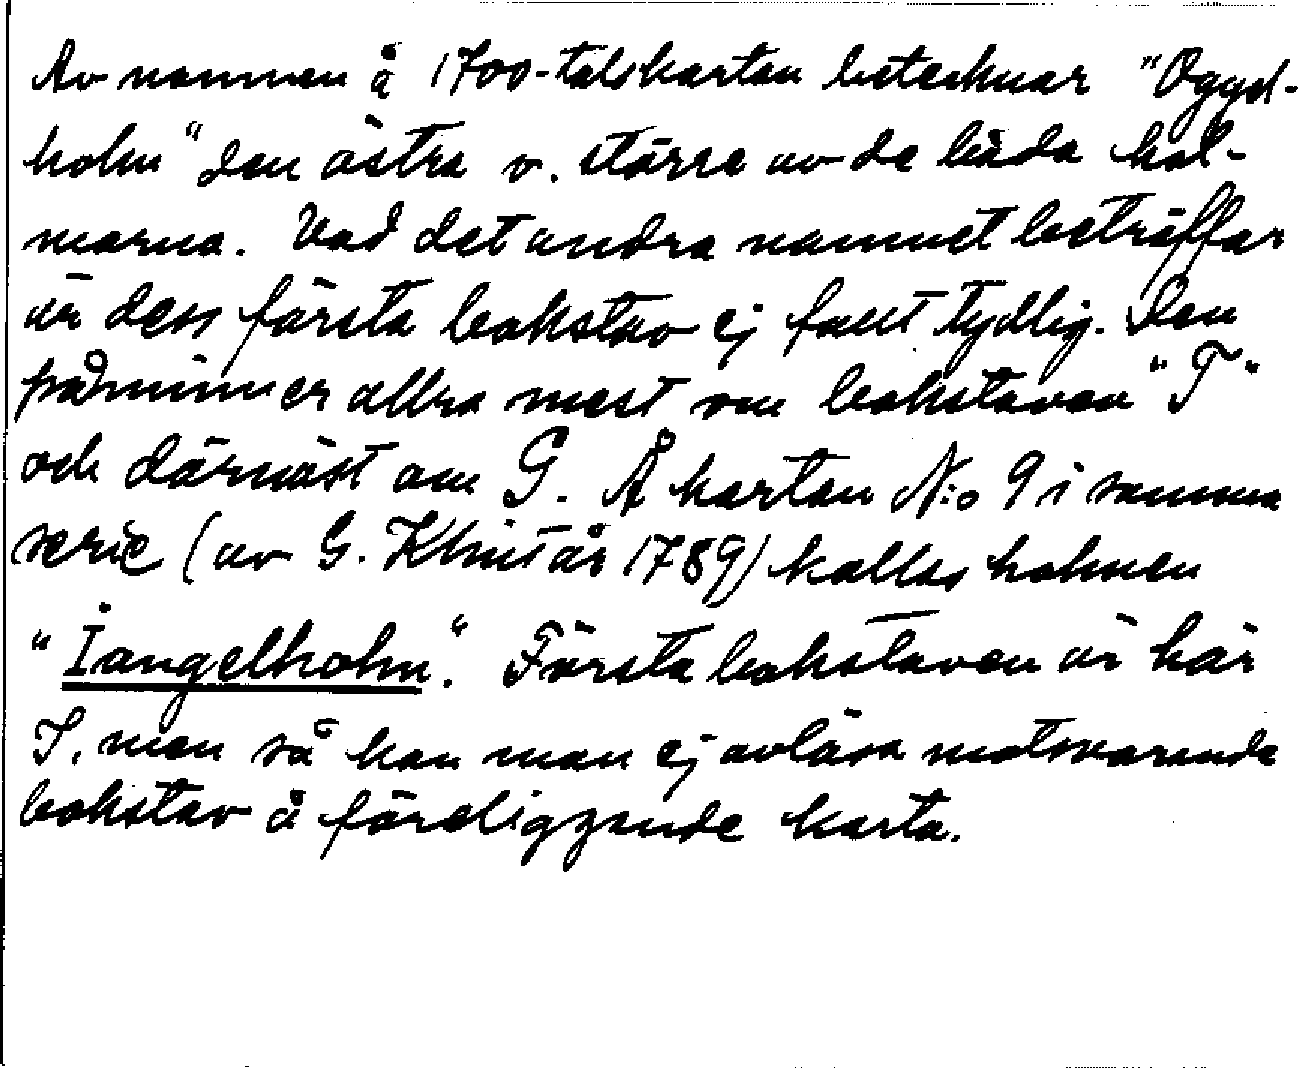 Av namnen å 1700-talskartan betecknar "Oggd-
holm" den östra o. större av de båda hol-
marna. Vad det andra namnet beträffar
är dess första bokstav ej fullt tydlig. Den
påminner allra mest om bokstaven "T"
och därnäst om G. Å kartan N:o 9 i samma
serie (av G. Klintår 1789) kallas holmen
"Iangelholm". Första bokstaven är här
I, men så kan man ej avläsa motsvarande
bokstav å föreliggande karta.